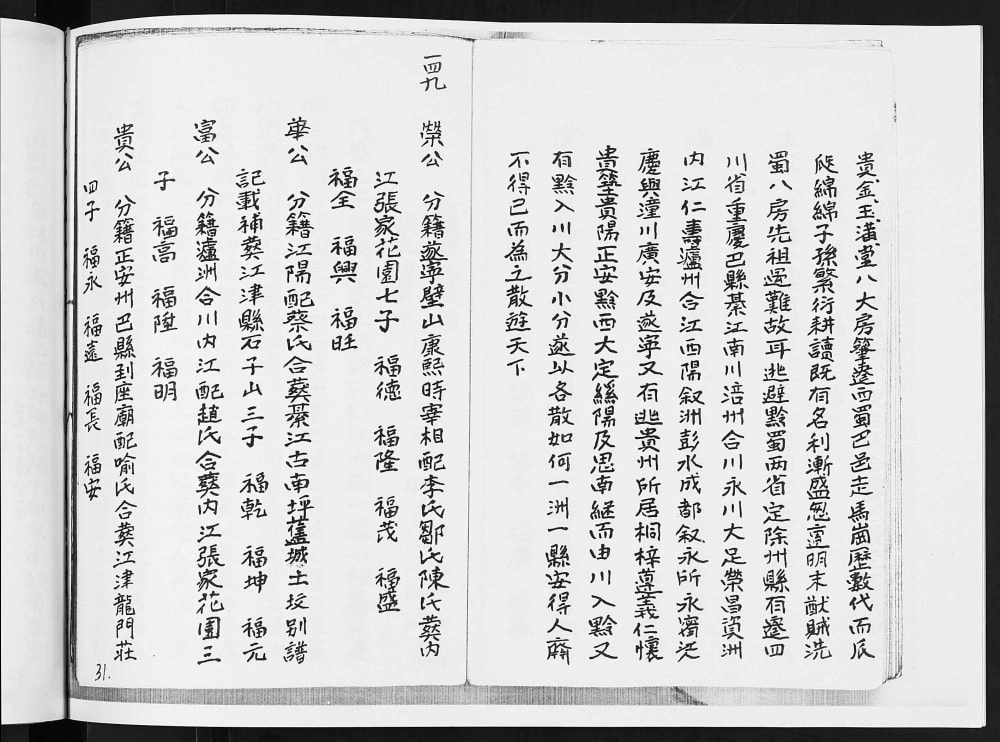 貴金玉滿堂八大房肇遷西蜀巴邑走馬崗歷數代而瓜
瓞綿綿子孫繁衍耕讀既有名利漸盛忽遭明末猷賊洗
蜀八房先祖遇難故耳逃避黔蜀两省定除州縣有遷四
川省重慶巴縣綦江南川涪州合川永川大足榮昌資洲
内江仁壽瀘州合江西陽叙洲彭水成都叙永所永甯
慶與潼川廣安及遂寧又有逃貴州所居桐梓遵義仁懷
貴築貴陽正安黔西大定綏陽及思南継而由川入黔又
有黔入川大分小分遂以各散如何一洲一縣安得人齊
不得已而為之散遊天下
一四九
榮公 分籍遂寧壁山康熙時宰相配李氏鄒氏陳氏葵内
江張家花園七子 福德 福隆 福茂 福盛
福全 福興 福旺
華公 分籍江陽配蔡氏合葵綦江古南坪舊城土坟别譜
記載補葵江津縣石子山三子 福乾 福坤 福元
富公 分籍瀘洲合川内江配趙氏合葵内江張家花園三
子 福高 福陞 福明
貴公 分籍正安州巴縣到座廟配喻氏合葵江津龍門莊
四子 福永 福遠 福長 福安
31.